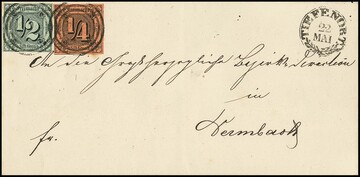 1/2 1/4
TIEFENORT
22
MAI
An die Großherzogliche Bezirks Direction
in
fr. Dermbach